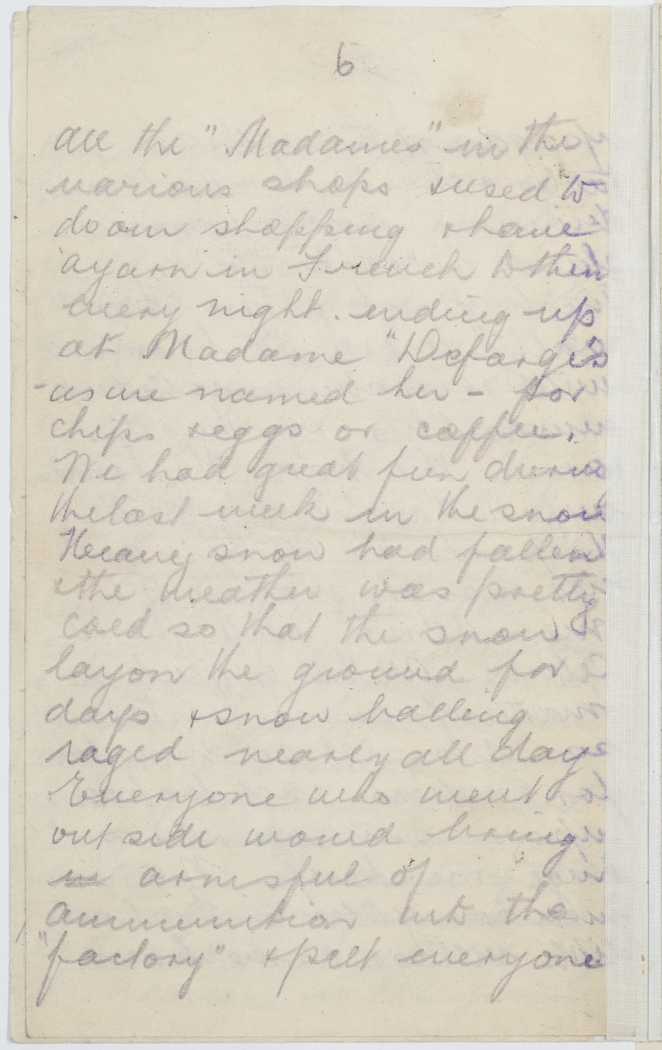 6
all the "Madames" in the
various shops & used to
do our shopping & have
a yarn in French to them
every night. ending up
at Madame "Defarge's
- as we named her - for
chips & eggs or coffee.
We had great fun during
the last week in the snow
Heavy snow had fallen
& the weather was pretty
cold so that the snow
lay on the ground for
days & snow balling
raged nearly all day
Everyone who went
outside would bring
in armsful of
ammunition into the
"factory" & pelt everyone